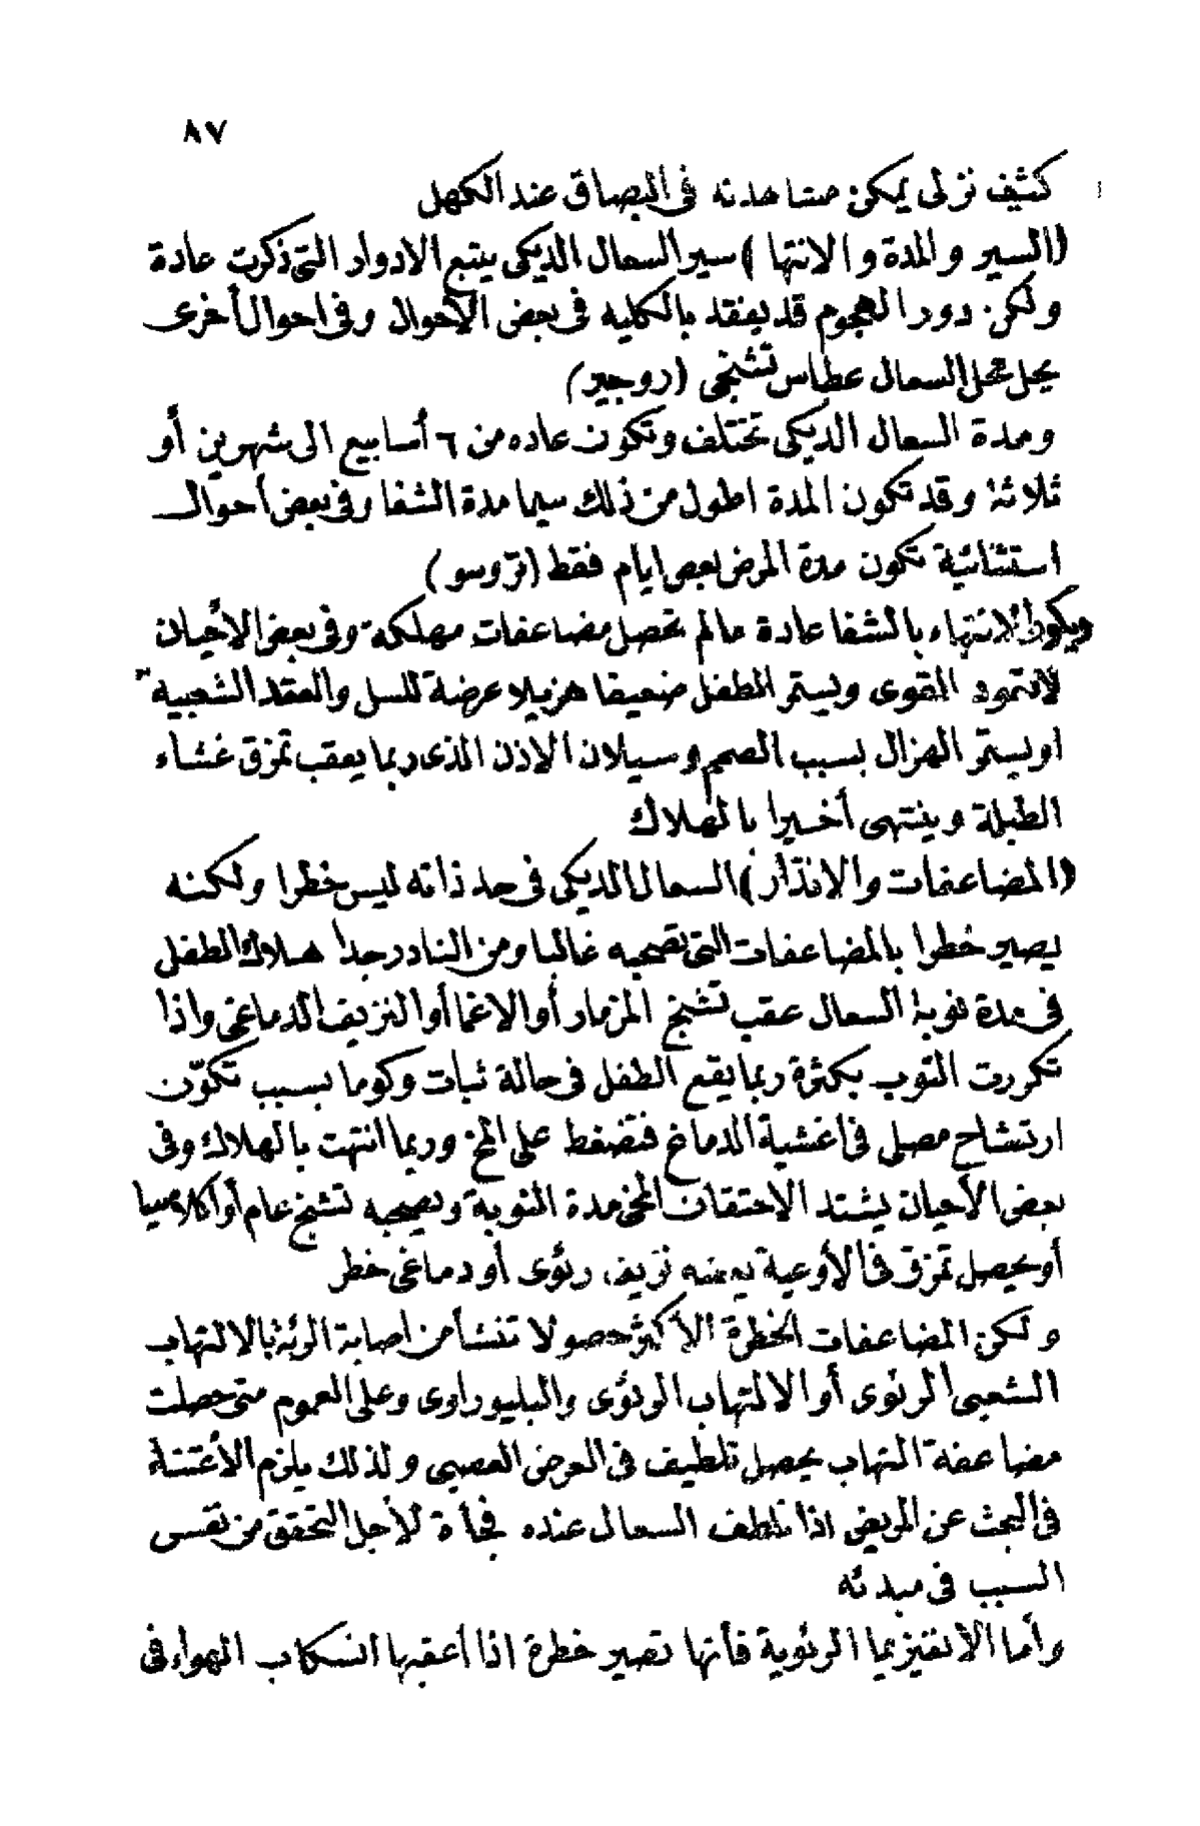 ٨٧
كثيف نزلى يمكن مشاهدته فى البصاق عند الكهل
(السير والمدة والانتها) سير السعال الديكى يتبع الادوار التى ذكرت عادة
ولكن دور الهجوم قد يفقد بالكليه فى بعض الأحوال وفى احوال أخرى
يحل محل السعال عطاس تشنجى (روجير)
ومدة السعال الديكى تختلف وتكون عاده من ٦ أسابيع الى شهرين أو
ثلاثة وقد تكون المدة اطول من ذلك سيما مدة الشفا وفى بعض أحوال
استثنائية تكون مدة المرض بعض ايام فقط (تروسو)
ويكون الانتهاء بالشفا عادة مالم تحصل مضاعفات مهلكة وفى بعض الأحيان
لاتعود القوى ويستمر الطفل ضعيفا هزيلا عرضة للسل والعقد الشعبية
اويستمر الهزال بسبب الصمم وسيلان الاذن الذى ربما يعقب تمزق غشاء
الطبلة وينتهى أخيرا بالهلاك
(المضاعفات والانذار) السعال الديكى فى حد ذاته ليس خطرا ولكنه
يصير خطرا بالمضاعفات التى تصحبه غالبا ومن النادر جدا هلاك الطفل
فى مدة نوبة السعال عقب تشنج المزمار أو الاغما أو النزيف الدماغى واذا
تكررت النوب بكثرة ربما يقع الطفل فى حالة ثبات وكوما بسبب تكوّن
ارتشاح مصلى فى اغشية الدماغ فتضغط على المخ وربما انتهت بالهلاك وفى
بعض الأحيان يشتد الاحتقان المخى مدة النوبة ويصحبه تشنج عام أو اكلامسيا
أو يحصل تمزق فى الأوعية يعقبه نزيف رئوى أو دماغى خطر
ولكن المضاعفات الخطرة الأكثر حصولا تنشأ من اصابة الرئة بالالتهاب
الشعبى الرئوى أو الالتهاب الرئوى والبليوراوى وعلى العموم متى حصلت
مضاعفة التهاب يحصل تلطيف فى العرض العصبى ولذلك يلزم الأعتناة
فى البحث عن المريض اذا تلطف السعال عنده فجأة لأجل التحقق من نفس
السبب فى مبدئه
وأما الانفيزيما الرئوية فأنها تصير خطرة اذا أعقبها انسكاب الهواء فى